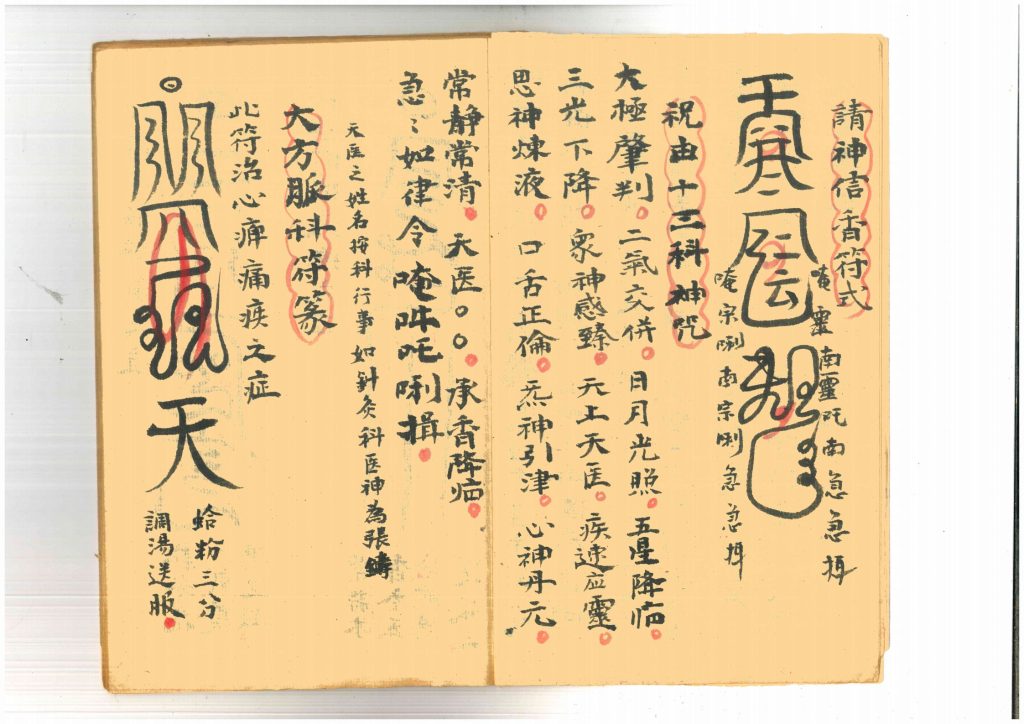 請神信香符式
唵靈南靈吒南急急揖
唵宗唎南宗唎急急揖
祝由十三科神咒
大極肇判。二氣交併。日月光照。五星降临。
三光下降。眾神感臻。天上天医。疾速应靈。
思神煉液。口舌正倫。炁神引津。心神丹元。
常静常清。天医〇〇。承香降临。
急〻如律令唵吽吒唎揖。
天医之姓名按科行事如針灸科医神為張鑄
大方脈科符篆
此符治心痺痛疾之症
天
蛤粉三分
調湯送服。